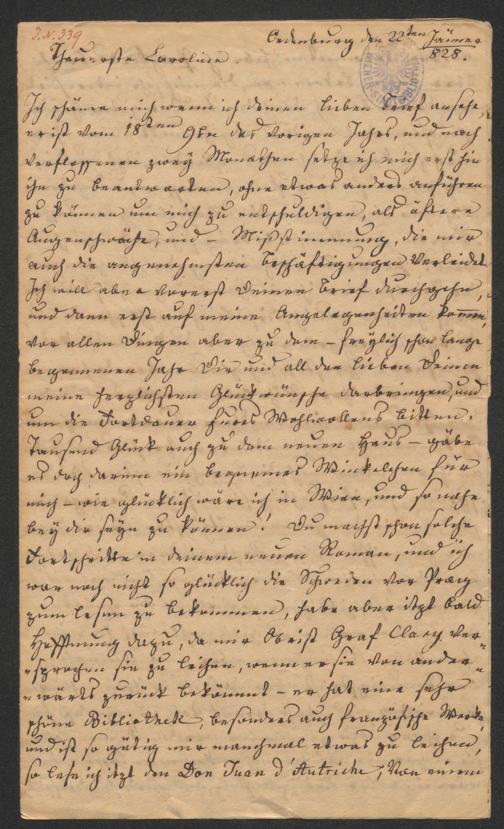 I.N. 339
Oedenburg den 22ten Jäner
828.
Theuerste Caroline.
Ich schäme mich wenn ich deinen lieben Brief ansehe
er ist vom 18ten 9ber des vorigen Jahrs, und nach
verflossenen zwey Monathen setze ich mich erst hin
ihn zu beantworten, ohne etwas anders anführen
zu können um mich zu entschuldigen, als öftere
Augenschwäche, und – Mißstimmung, die mir
auch die angenehmsten Beschäftigungen verleidet
Ich will aber vorerst Deinen Brief durchgehn,
und dann erst auf meine Angelegenheiten kommen,
vor allen Dingen aber zu dem – freylich schon lange
begonnenen Jahr Dir und all den lieben Deinen
meine herzlichsten Glückwünsche darbringen, und
um die Fortdauer Eures Wohlwollens bitten.
Tausend Glück auch zu dem neuen Haus – gäbe
es doch darinn ein bequemes Winkelchen für
mich – wie glücklich wäre ich in Wien, und so nahe
bey dir seyn zu können! Du machst schon solche
Fortschritte in deinem neuen Roman, und ich
war noch nicht so glücklich die Schweden vor Prag
zum lesen zu bekommen, habe aber itzt bald
Hoffnung dazu, da mir Obrist Graf Clary ver-
sprochen sie zu leihen, wenn er sie von ander-
wärts zurück bekömmt – er hat eine sehr
schöne Bibliothek, besonders auch französische Werke,
und ist so gütig mir manchmal etwas zu leihen,
so lese ich itzt den Don Juan d'Autriche, von einem